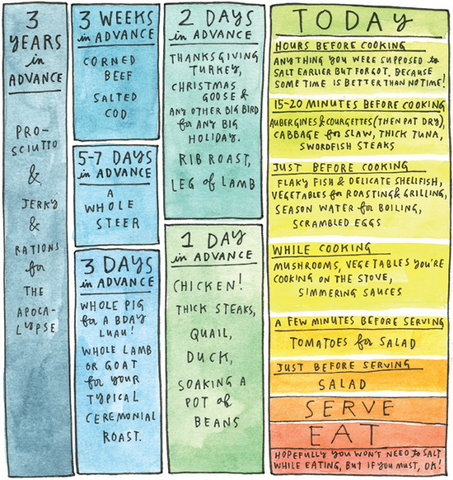 3
YEARS
in
ADVANCE
PRO-
SCIUTTO
&
JERKY
&
RATIONS
for
THE
APOCA-
LYPSE
3 WEEKS
in ADVANCE
CORNED
BEEF
SALTED
COD
5-7 DAYS
in ADVANCE
A
WHOLE
STEER
3 DAYS
in ADVANCE
WHOLE PIG
for A BDAY
LUAU!
WHOLE LAMB
OR GOAT
for YOUR
TYPICAL
CEREMONIAL
ROAST.
2 DAYS
in ADVANCE
THANKSGIVING
TURKEY,
CHRISTMAS
GOOSE &
ANY OTHER BIG BIRD
for ANY BIG
HOLIDAY.
RIB ROAST,
LEG of LAMB
1 DAY
in ADVANCE
CHICKEN!
THICK STEAKS,
QUAIL,
DUCK,
SOAKING A
POT of
BEANS
TODAY
HOURS BEFORE COOKING
ANYTHING YOU WERE SUPPOSED to
SALT EARLIER BUT FORGOT, BECAUSE
SOME TIME IS BETTER THAN NO TIME!
15-20 MINUTES BEFORE COOKING
AUBERGINES & COURGETTES (THEN PAT DRY),
CABBAGE for SLAW, THICK TUNA,
SWORDFISH STEAKS
JUST BEFORE COOKING
FLAKY FISH & DELICATE SHELLFISH,
VEGETABLES for ROASTING & GRILLING,
SEASON WATER for BOILING,
SCRAMBLED EGGS
WHILE COOKING
MUSHROOMS, VEGETABLES YOU'RE
COOKING ON THE STOVE,
SIMMERING SAUCES
A FEW MINUTES BEFORE SERVING
TOMATOES for SALAD
JUST BEFORE SERVING
SALAD
SERVE
EAT
HOPEFULLY YOU WON'T NEED to SALT
WHILE EATING, BUT IF YOU MUST, OK!